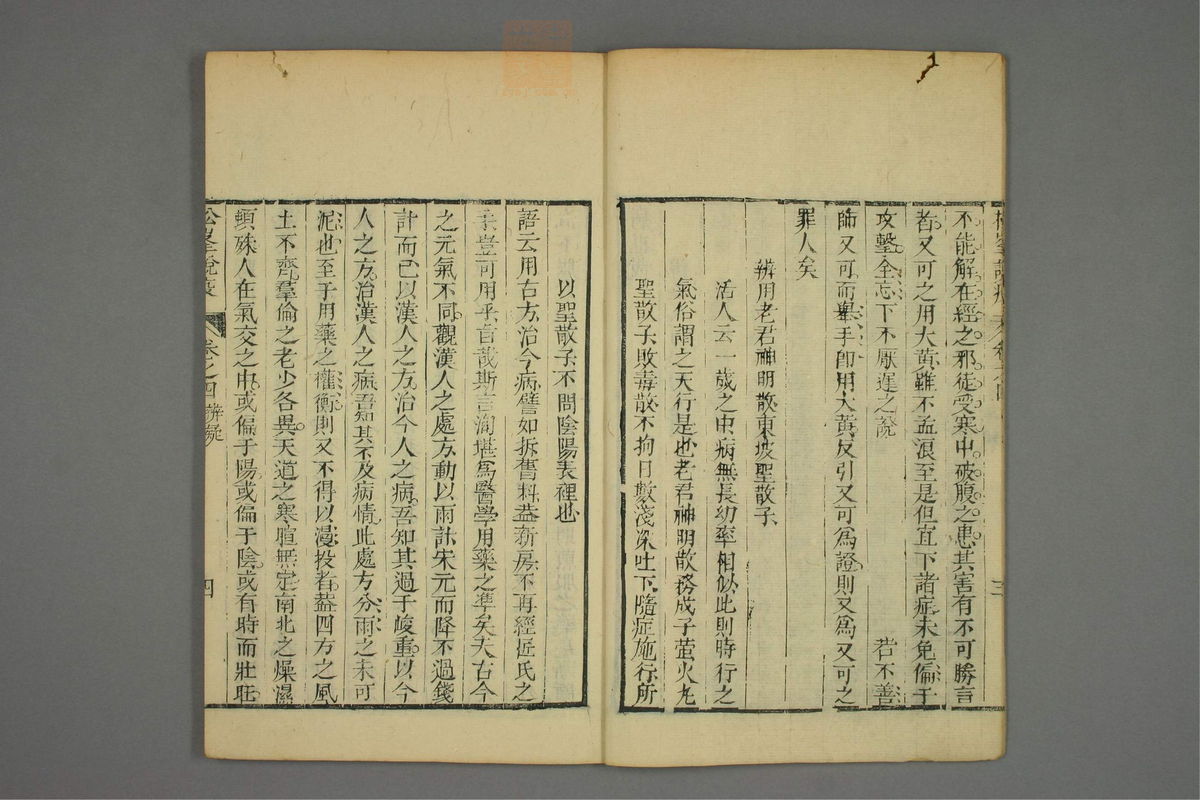 不能解在經之邪徒受寒中破腹之患其害有不可勝言
者又可之用大黃雖不孟浪至是但宜下諸症未免偏于
攻擊全忘下不厭遲之說 若不善
師又可而舉手即用大黃反引又可為證則又為又可之
罪人矣
辨用老君神明散東坡聖散子
活人云一歲之中病無長幼率相似此則時行之
氣俗謂之天行是也老君神明散務成子螢火丸
聖散子敗毒散不拘日數淺深吐下隨症施行所
以聖散子不問陰陽表裡也
語云用古方治今病譬如拆舊料蓋新房不再經匠氏之
手豈可用乎旨哉斯言洵堪為醫學用藥之準矣夫古今
之元氣不同觀漢人之處方動以兩計宋元而降不過錢
計而已以漢人之方治今人之病吾知其過于峻重以今
人之方治漢人之病吾知其不及病情此處方分兩之未可
泥也至于用藥之權衡則又不得以漫投者蓋四方之風
土不齊羣倫之老少各異天道之寒暄無定南北之燥濕
頓殊人在氣交之中或偏于陽或偏于陰或有時而壯旺
松峯說疫 卷之四 辨疑 四